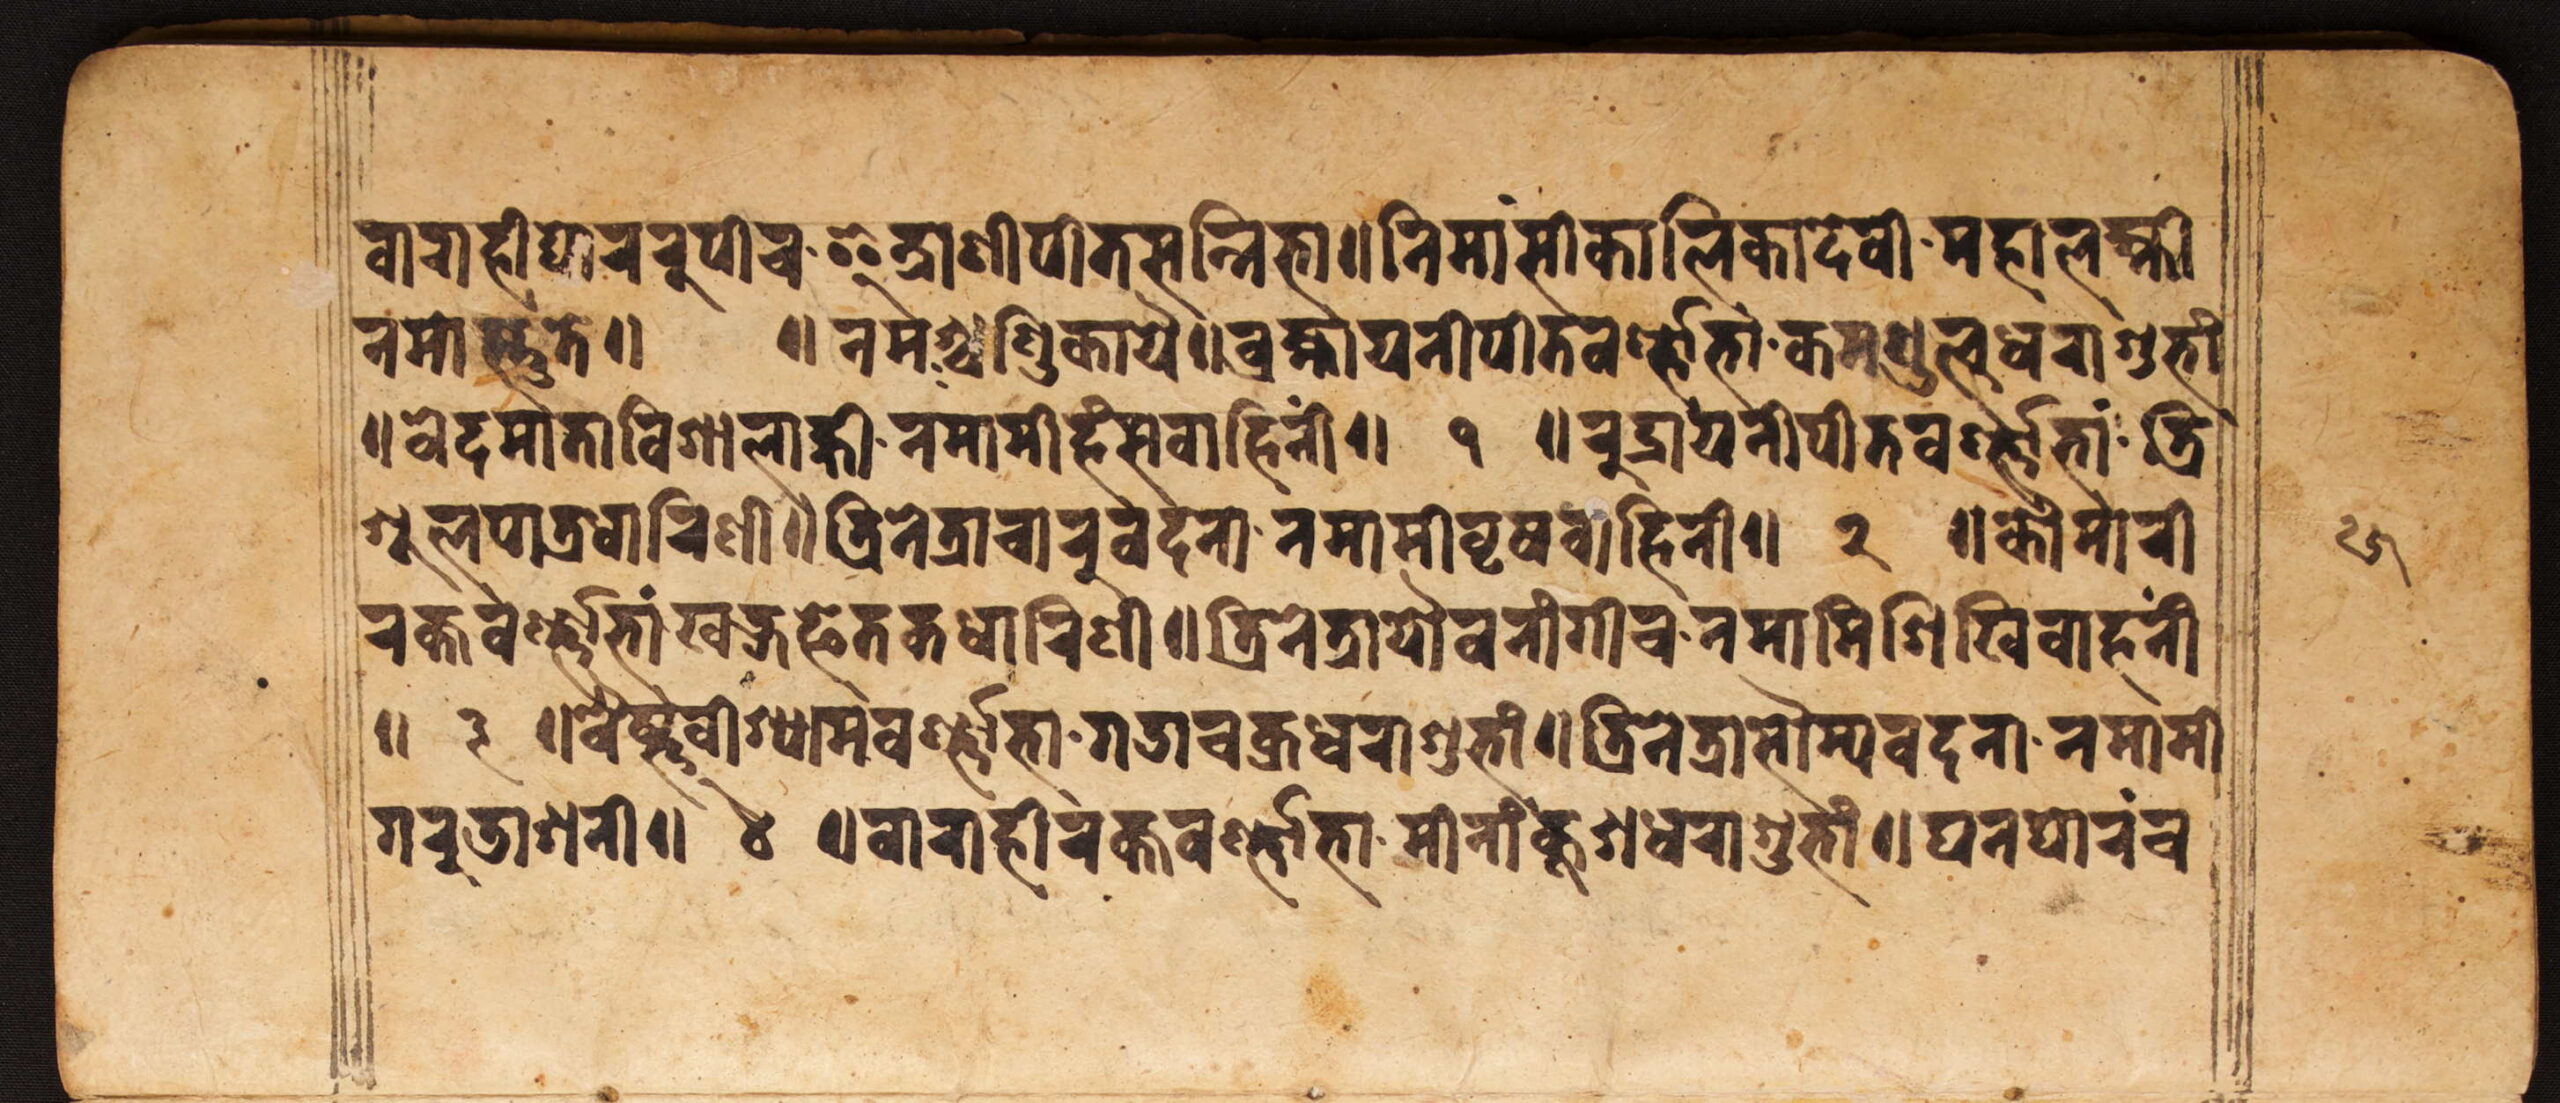 वाराहीघोररुपीच·इन्द्राणीपीतसन्निभा॥निमांसीकालिकादेवी·महालक्ष्मी
नमोस्तुते॥ ॥नमश्चण्डिकायै॥ब्रह्मायनीपीतवर्ण्णाभां·कमण्डलुधराशुभां
॥वेदमाताविशालाक्षी·नमामीहंसवाहिनीं॥ १ ॥रुद्रायनीपीतवर्ण्णाभां·त्रि
शूलपात्रधारिणी॥त्रिनेत्राचारुवदना·नमामीवृषवाहिनी॥ २ ॥कौमारी
रक्तवर्ण्णाभां·खड्गफेतकधारिणी॥त्रिनेत्रायौवनांगीच·नमामिशिखिवाहनीं
॥ ३ ॥वैष्णवीश्यामवर्ण्णाभा·गडाचक्रधराशुभां॥त्रिनेत्रासौम्यवदना·नमामी
गरुडाशनी॥ ४ ॥वाराहीरक्तवर्ण्णाभा·मीनांकूशधराशुभां॥घनघोरंच